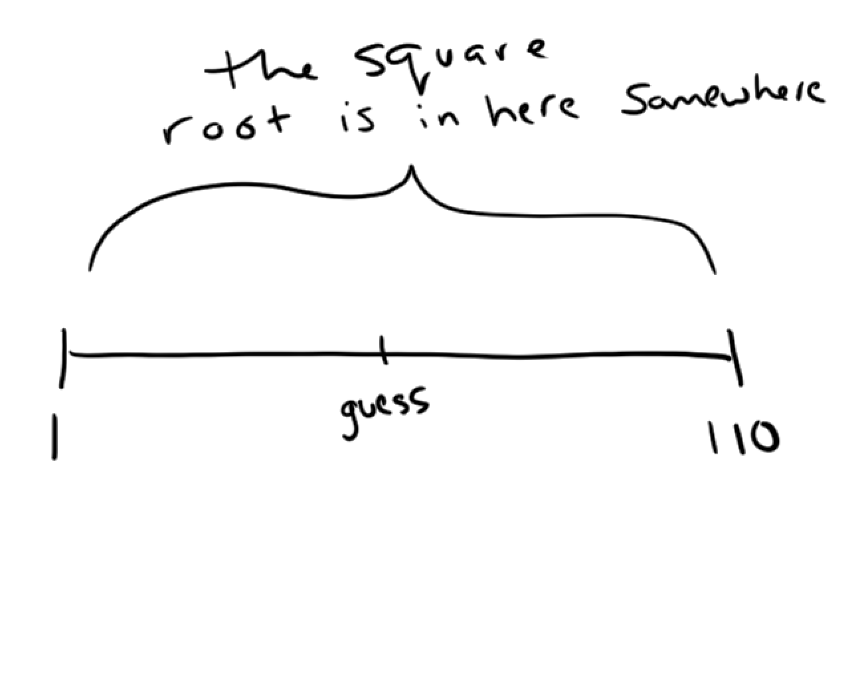 the square
root is in here somewhere
guess
1 110